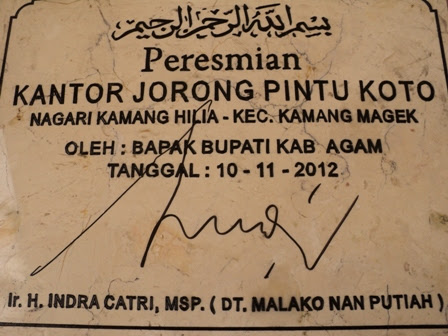 بسم الله الرحمن الرحيم
Peresmian
KANTOR JORONG PINTU KOTO
NAGARI KAMANG HILIA - KEC. KAMANG MAGEK
OLEH : BAPAK BUPATI KAB AGAM
TANGGAL : 10 - 11 - 2012
Ir. H. INDRA CATRI, MSP. ( DT. MALAKO NAN PUTIAH )